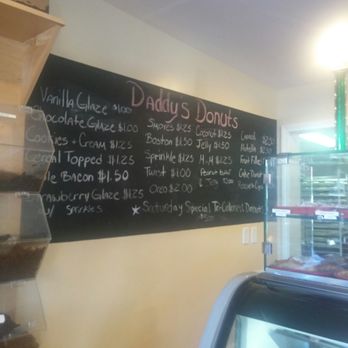 Daddy's Donuts
Vanilla Glaze $1.00
Chocolate Glaze $1.00
Cookies + Cream $1.25
Cereal Topped $1.25
Bacon $1.50
Strawberry Glaze $1.25
w/ sprinkles
Smores $1.25
Boston $1.50
Sprinkle $1.25
Twist $1.00
Oreo $2.00
Coconut $1.25
Jelly $1.50
M+M $1.25
Peanut Butter
& Jelly
Nutella
Fruit Filled
Cake Donut
★ Saturday Special Tri-Colored Donuts